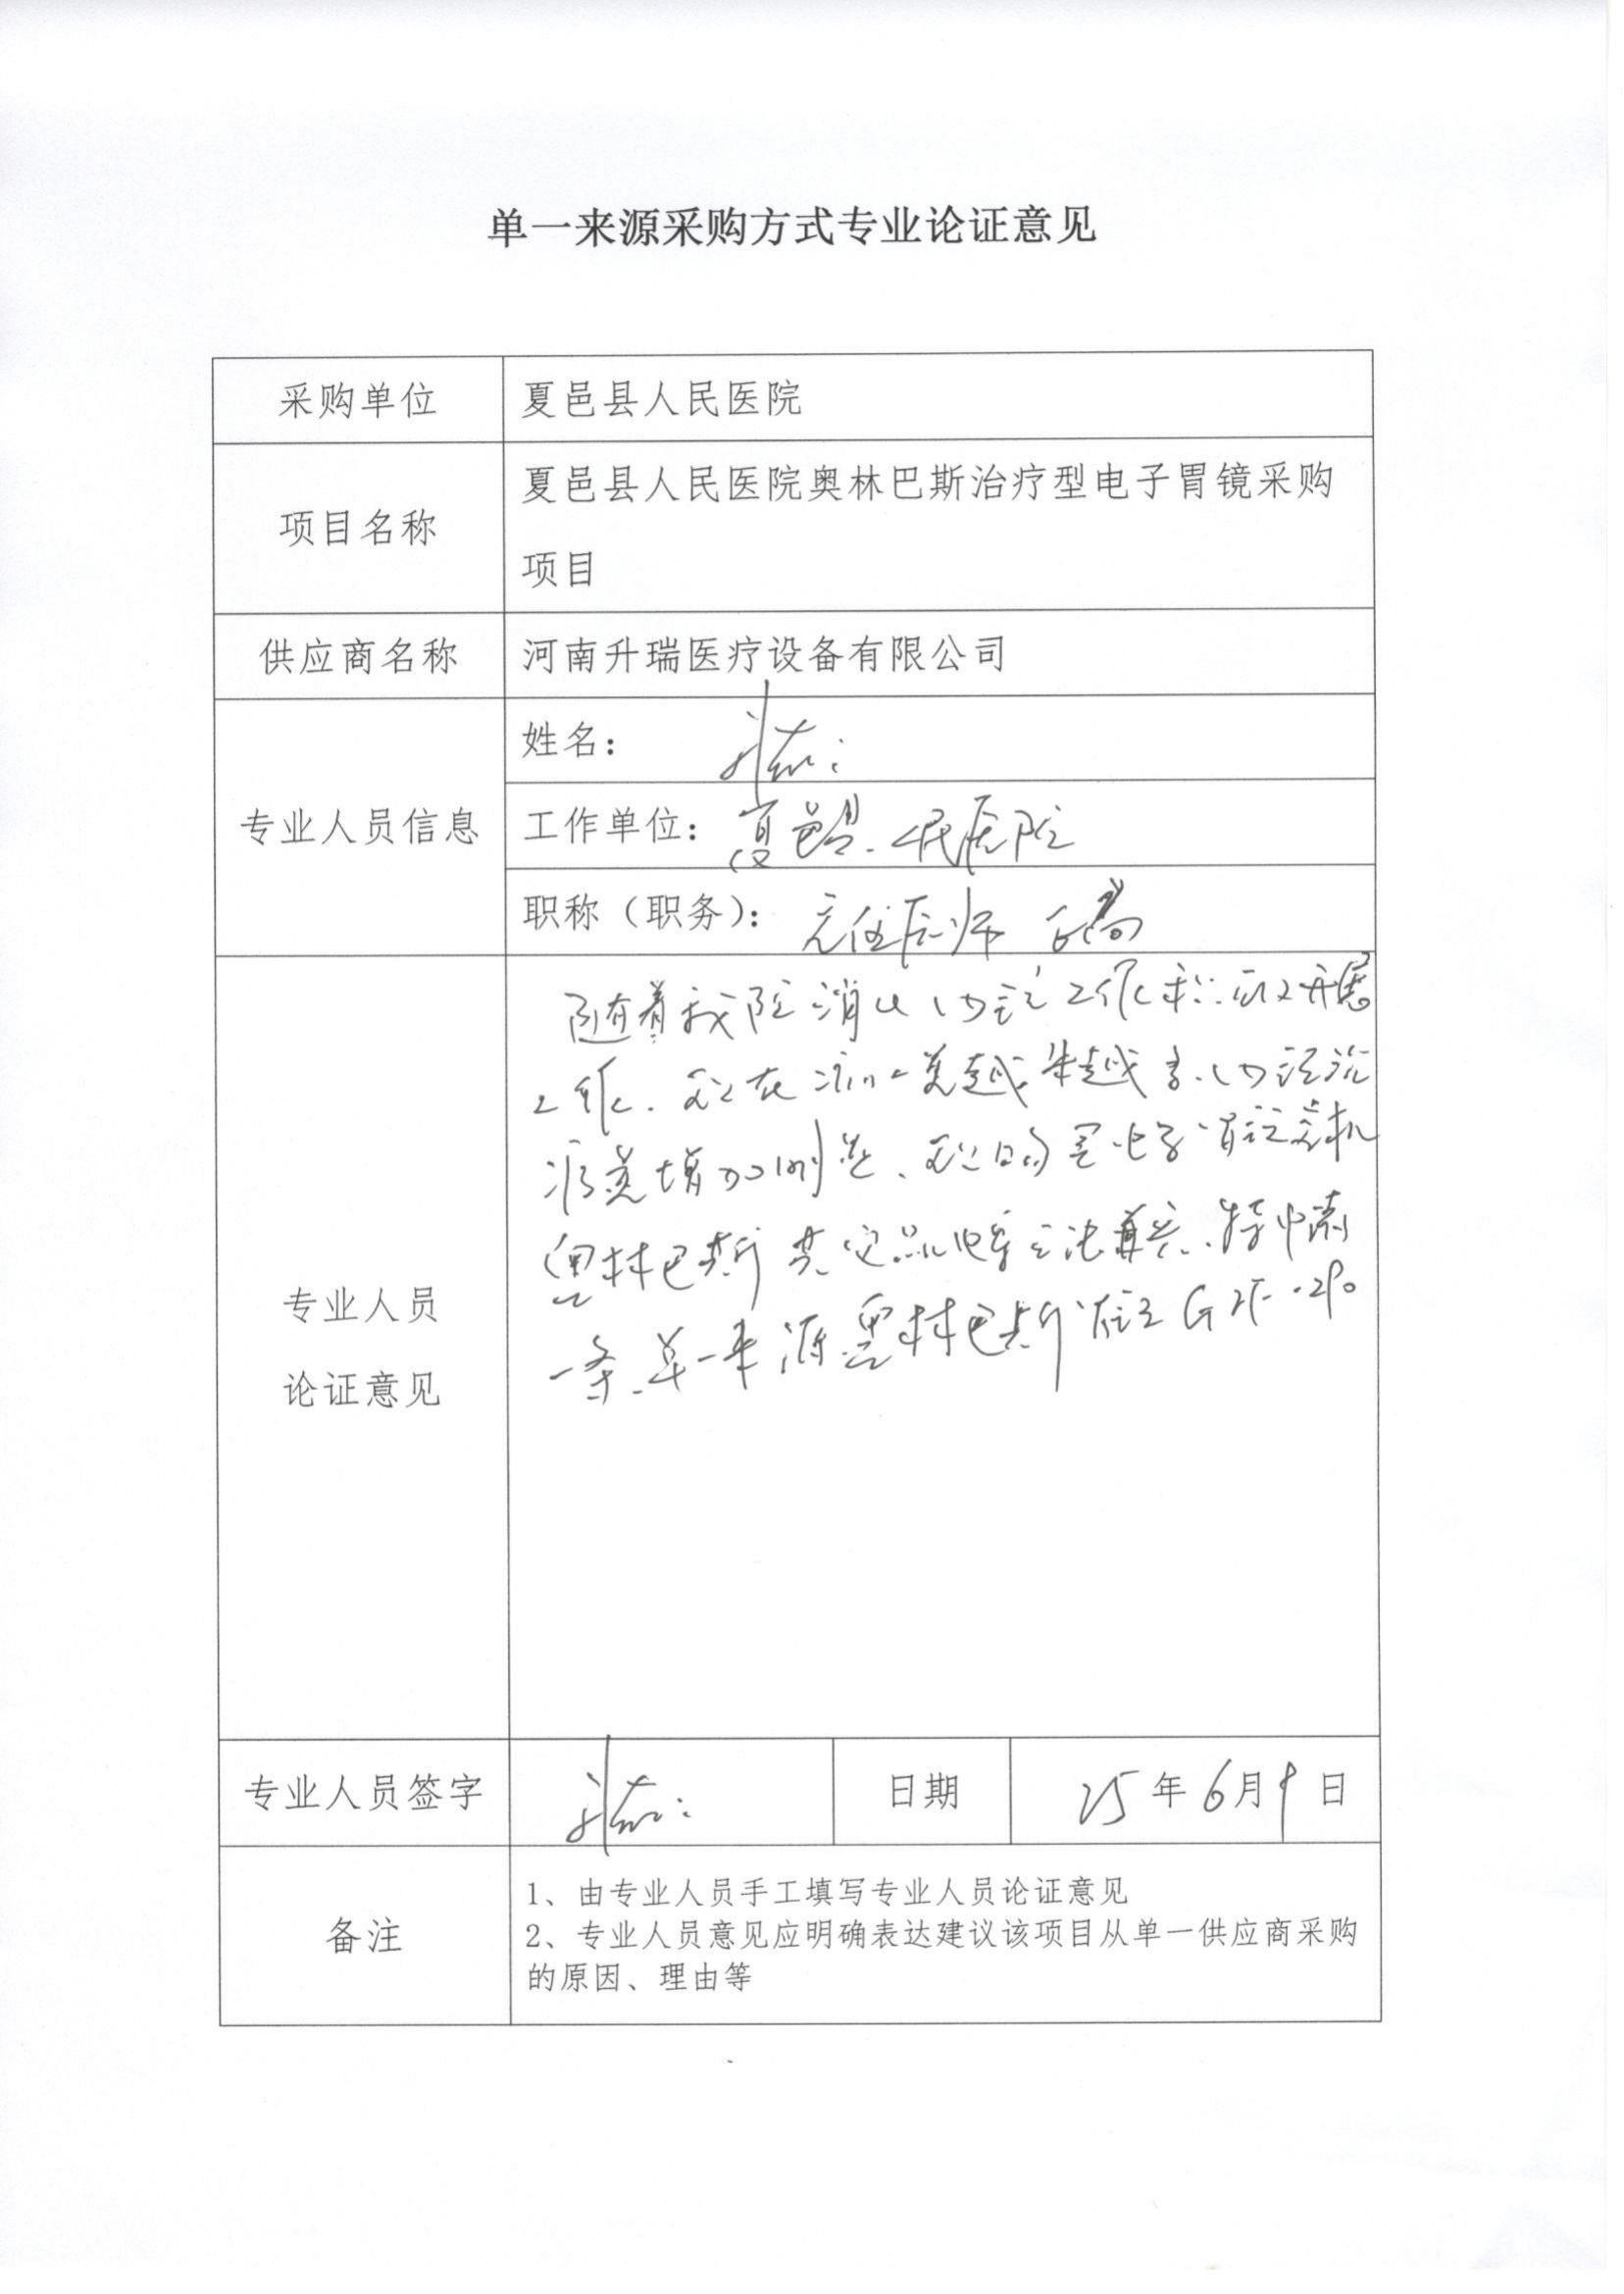 单一来源采购方式专业论证意见
采购单位
夏邑县人民医院
项目名称
夏邑县人民医院奥林巴斯治疗型电子胃镜采购
项目
供应商名称
河南升瑞医疗设备有限公司
专业人员信息
姓名：
工作单位：夏邑县人民医院
职称（职务）：主任医师
专业人员
论证意见
随着我院消化内镜工作积 开展
工作. 现在 越来越 内镜
增加 现 电子胃镜主机
奥林巴斯 其它品牌 无法兼容. 特申请
一条.单一来源奥林巴斯胃镜 GIF
专业人员签字
日期
25年6月9日
备注
1、由专业人员手工填写专业人员论证意见
2、专业人员意见应明确表达建议该项目从单一供应商采购
的原因、理由等